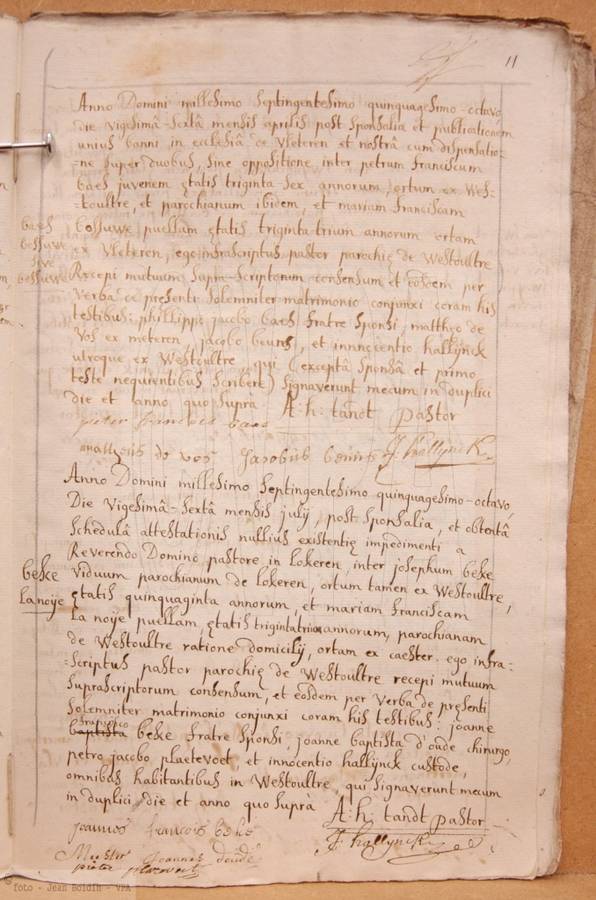 11
Anno Domini millesimo septingentesimo quinquagesimo-octavo,
die vigesimâ-sextâ mensis aprilis post sponsalia et publicationem
unius banni in ecclesiâ de Vleteren et nostrâ cum dispensatio-
-ne super duobus, sine oppositione inter petrum franciscum
baes juvenem ętatis triginta sex annorum, ortum ex Wes-
-toultre, et parochianum ibidem, et mariam franciscam
bossuwe puellam ętatis triginta trium annorum ortam
baes
bossuwe
sive
bossuwe
ex Vleteren, ego infrascriptus pastor parochię de Westoultre
Recepi mutuum supra-scriptorum consensum et eosdem per
verba de presenti solemniter matrimonio conjunxi coram his
testibus: phillippo jacobo baes fratre sponsi, matthęo de
Vos ex meteren, jacobo beuns, et innocentio hallynck
utroque ex Westoultre, qui (exceptâ sponsâ et primo
teste nequientibus scribere) signaverunt mecum in duplici
die et anno quo suprà A: h: tandt pastor
pieter francois baes
mattheus de vos Jacobus beuns J. hallynck
Anno Domini millesimo septingentesimo quinquagesimo-octavo,
Die vigesimâ-sextâ mensis julij, post sponsalia, et obtentâ
schedulâ attestationis nullius existentię impedimenti a
Reverendo Domino pastore in Lokeren, inter josephum beke
beke
La noije
viduum parochianum de Lokeren, ortum tamen ex Westoultre,
ętatis quinquaginta annorum, et mariam franciscam
La noije puellam, ętatis triginta trium annorum, parochianam
de Westoultre ratione domicilij, ortam ex caester. ego infra-
-scriptus pastor parochię de Westoultre recepi mutuum
suprascriptorum consensum, et eosdem per verba de pręsenti
solemniter matrimonio conjunxi coram his testibus: joanne
francisco
baptista beke fratre sponsi, joanne baptista d'oude chirurgo,
petro jacobo plaetevoet, et innocentio hallynck custode,
omnibus habitantibus in Westoultre, qui signaverunt mecum
in duplici, die et anno quo suprà A. h. tandt pastor
joannes francois beke J. hallynck
Meester Joannes doude
pieter plaetevoet
© foto - Jean Boldin - VPA